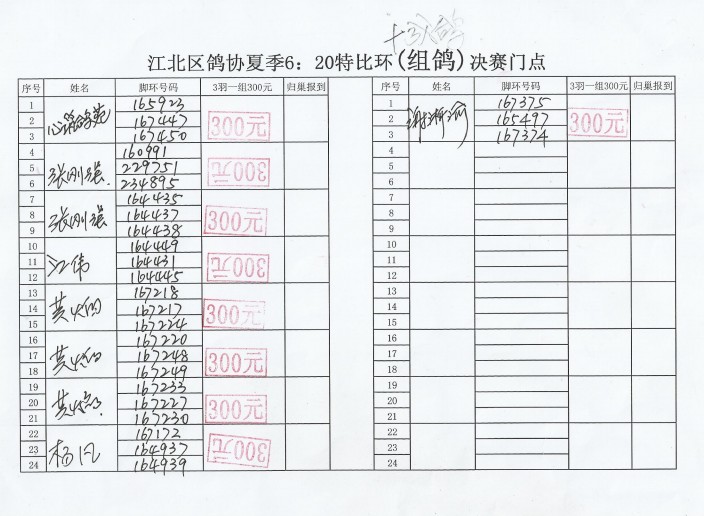 江北区鸽协夏季6：20特比环(组鸽)决赛门点
序号 姓名 脚环号码 3羽一组300元 归巢报到 序号 姓名 脚环号码 3羽一组300元 归巢报到
1 165923 1 167375
2 167447 300元 2 165497 300元
3 167450 3 167374
4 160991 4
5 张刚强 229751 300元 5
6 234895 6
7 164435 7
8 张刚强 164437 300元 8
9 164438 9
10 164449 10
11 江伟 164431 300元 11
12 164445 12
13 167218 13
14 167217 300元 14
15 167224 15
16 167220 16
17 167248 300元 17
18 167249 18
19 167233 19
20 167227 300元 20
21 167230 21
22 167172 22
23 164937 300元 23
24 164939 24